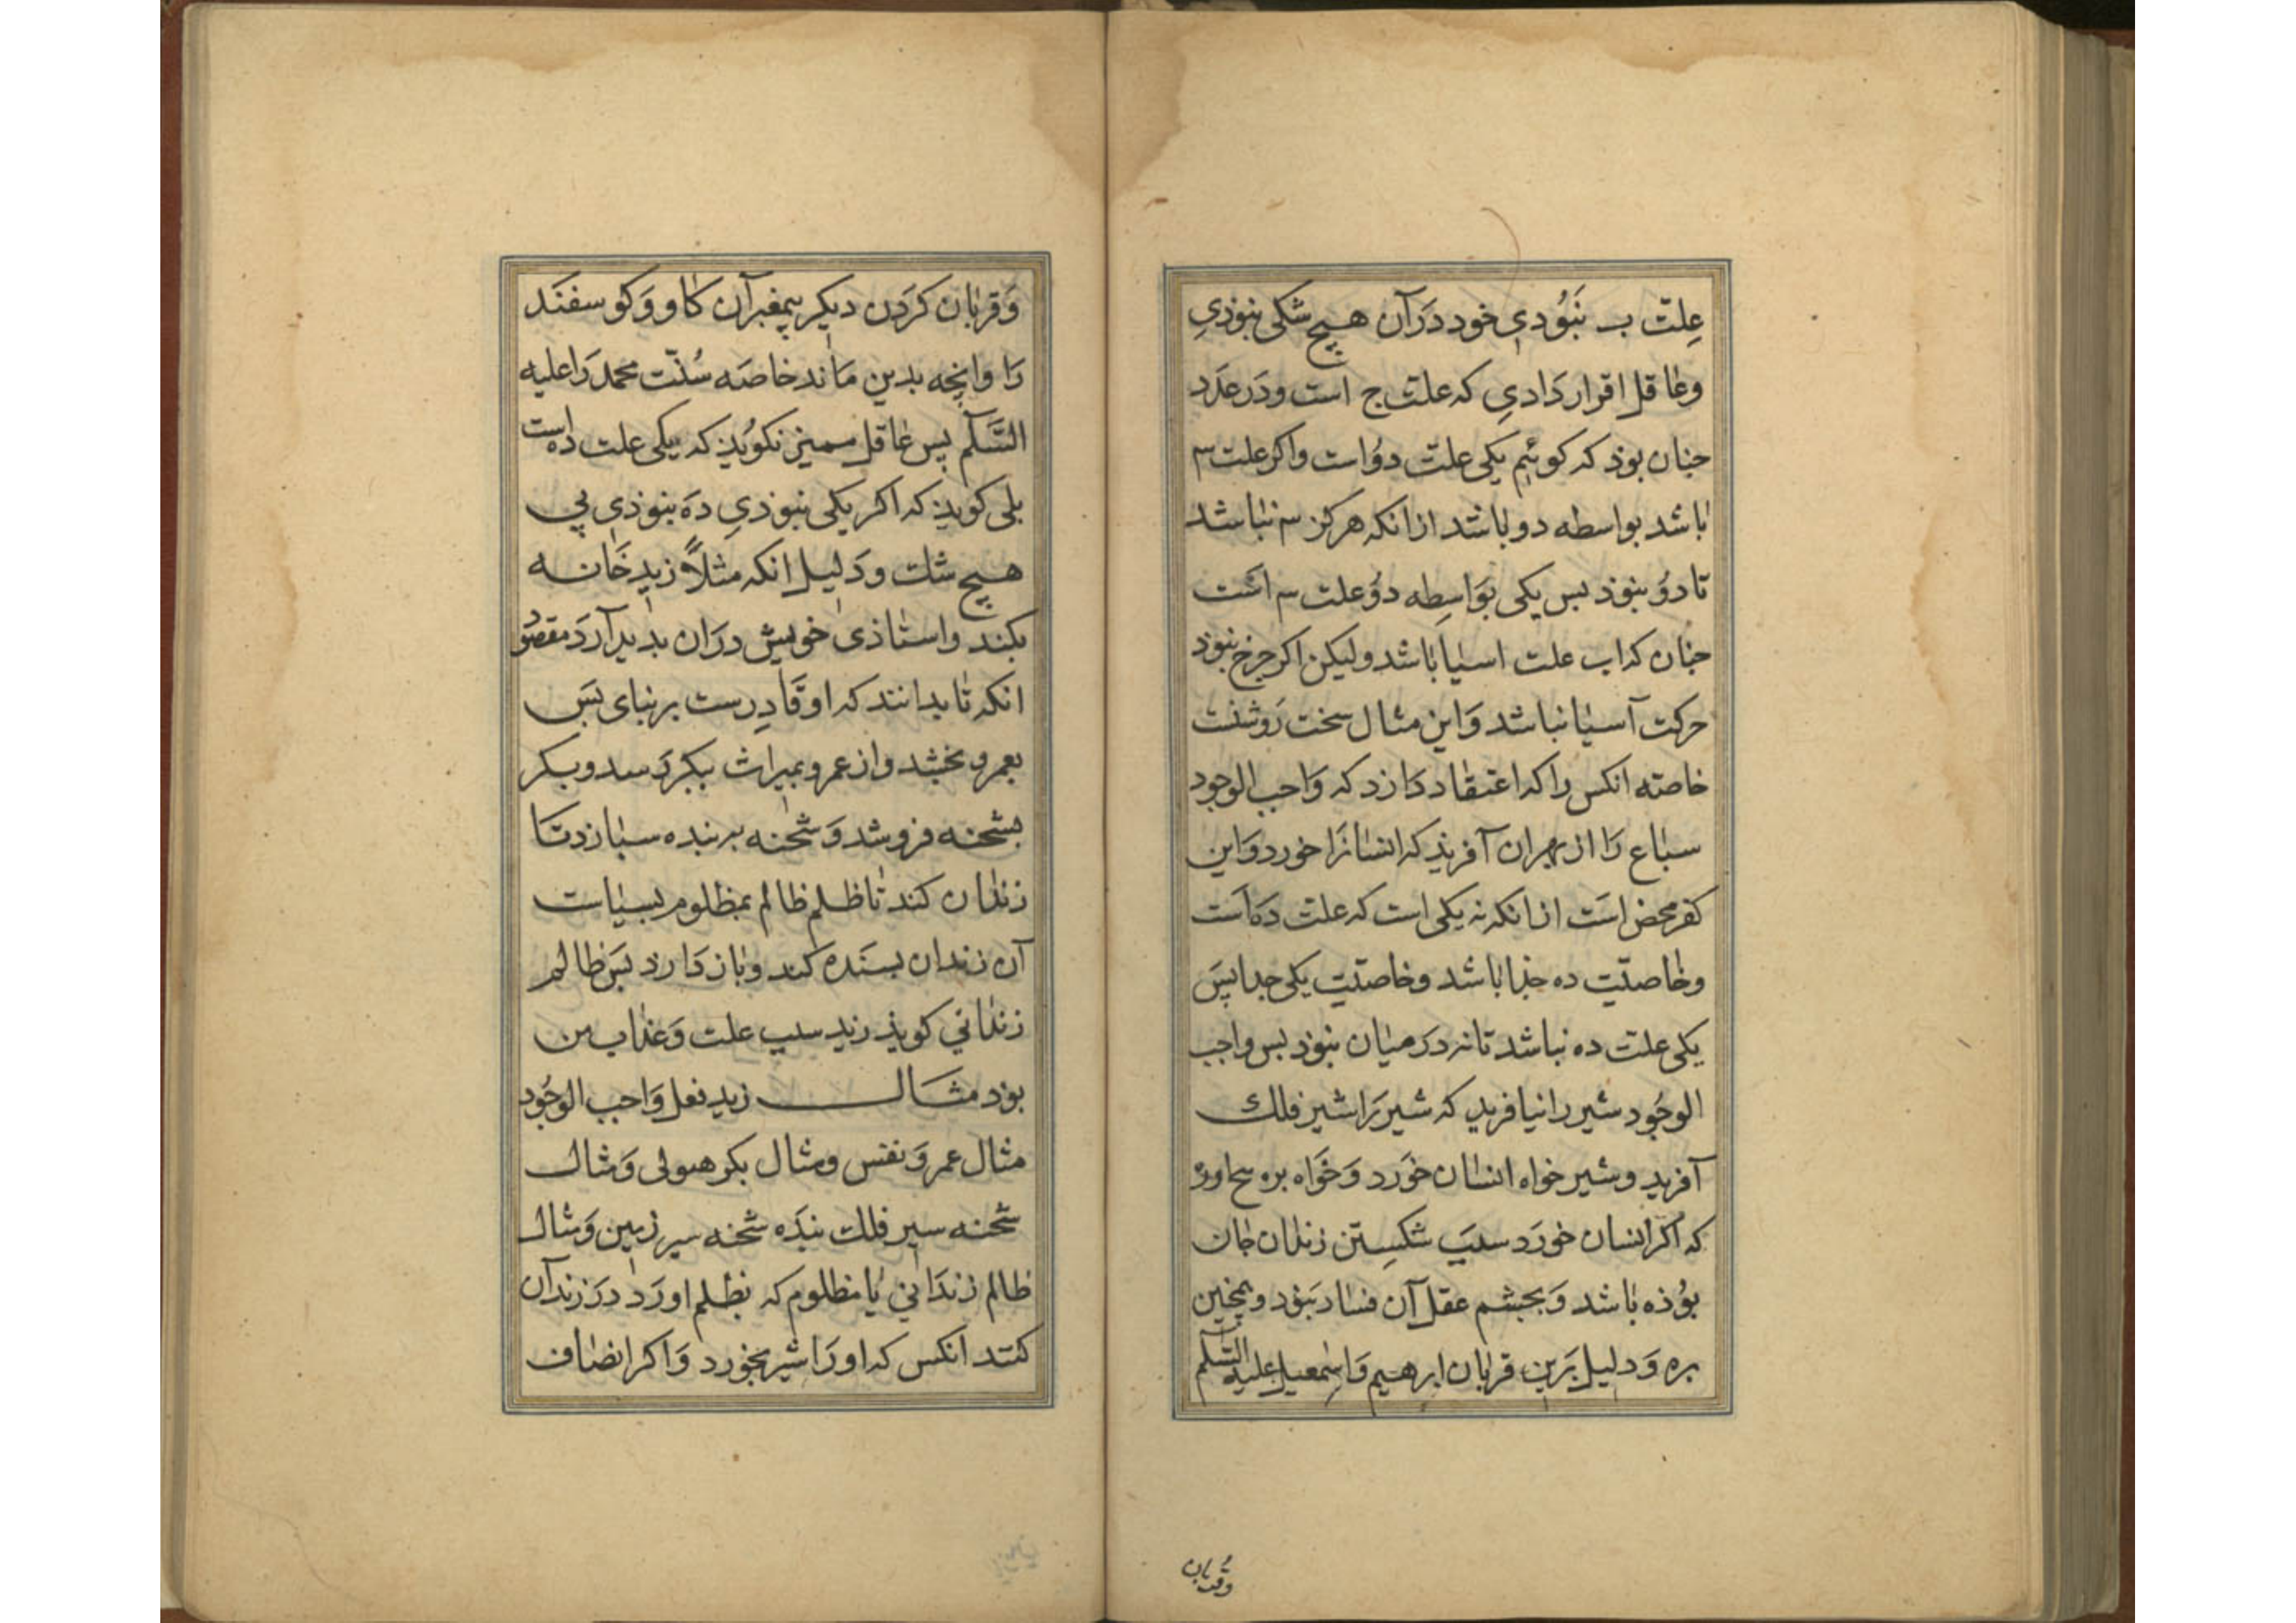 عِلتّ ب نَبُودیِ خود دَرآن هیچ شکی نبوذیِ
وعاقل اقرار دَادیِ که علتّ ج است ودَر عَدَد
جنان بوذ که کوئیم یکی علتّ دوُاست واکر علت سه
باشد بواسطه دو باشد ازانکه هرکز سه نباشد
تا دوُ نبوذ بس یکی بوَاسِطه دوُ علت سه است
جنان که اب علت اسیا باشد ولیکن اکر جرخ نبوذ
حرکت آسیا نباشد وَاین مثال سخت رَوشنست
خاصّه انکس را که اعتقاد دَارَد که وَاجب الوجود
سباع رَا از بهرآن آفرید که انسانرَا خورد وَاین
کفر محض است ازانکه نه یکی است که علتّ دَه است
وخاصیّت ده جذا باشد وخاصیّت یکی جدا پسَ
یکی علت ده نباشد تا نه دَر میان نبوذ بس واجب
الوجُود شیر را نیافرید که شیرَ را شیر فلک
آفرید وشیر خواه انسان خوَرد وَخوَاه بره
که اکر انسان خورَد سبب شکسِتن زندان جان
بوُذه باشد وَبجشم عقل آن فسَاد نبَوَد وهمچنین
بره وَدلیل بَرین قربان ابرهیم وَاسِمعیل علیه السَّلم
وقربان
وَقربان کرَدن دیکر پیمغبرآن کاو وَکوسفنَد
رَا وانچه بدین مَاند خاصَه سُنّت محمد رَا علیه
السَّلم پس عاقل ممیز نکویُذ که یکی علت ده است
بلی کویذ که اکر یکی نبوذیِ دَه نبوذیِ بی
هیچ شک ودَلیل انکه مثلاً زید خَانه
بکند واستاذی خویش درَان بدید آردَ مقصود
انکه تا بدانند که او قَادِرست بر بنای بسَ
بعمرو بخشد واز عمرو بمیراث ببکر رَسد وبکر
بشحنه فروشد وَشحنه به بنده سبارد تا
زندان کند تا ظلم ظالم بمظلوم بسیاست
آن زندان بسنَده کند وباز دَارد بسَ ظالم
زندانی کویذ زید سبب علت وَعذاب من
بوَد مثال زید فعل وَاجب الوجُود
مثال عمرو نفس ومثال بکر هیولی وَمثال
شحنه سیر فلک بندَه شحنه سیر زمین وَمثال
ظالم زندَانی یا مظلوم که بظلم اورَا دَر زندآن
کنند انکس که اورَا شیر بخورد وَاکر انصاف